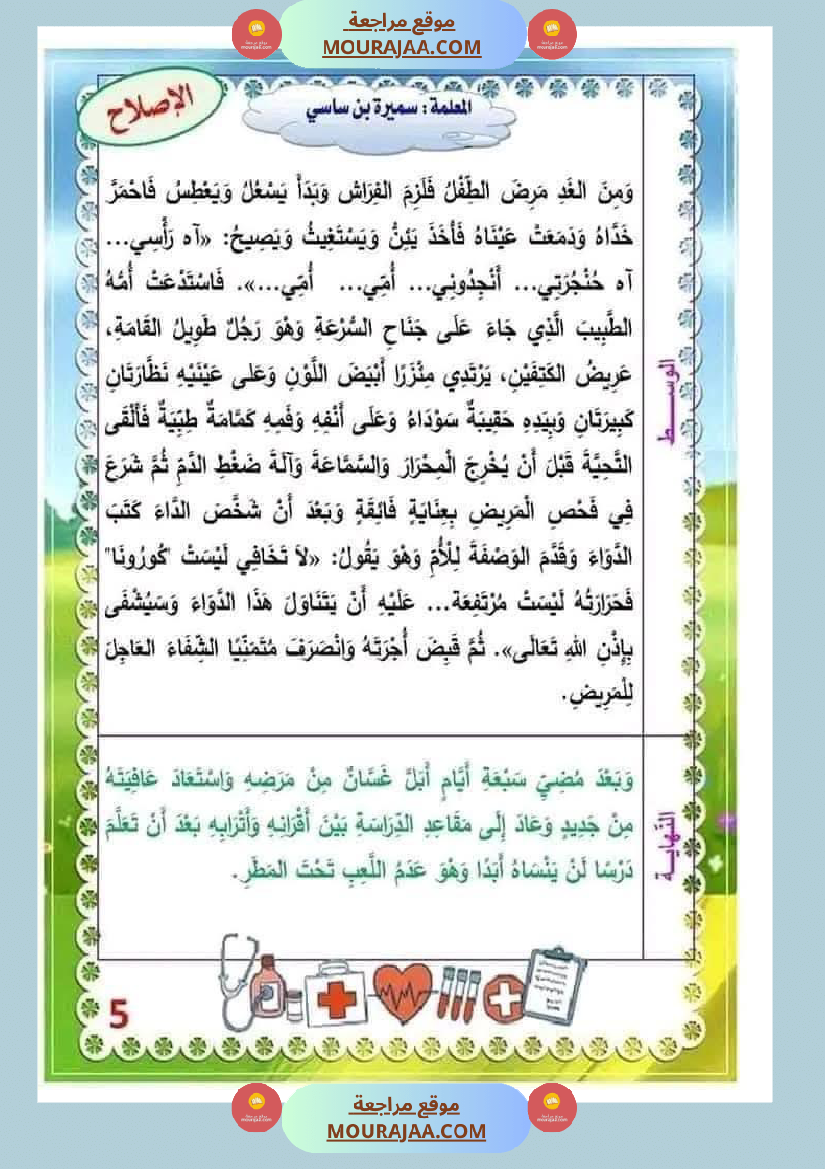 موقع مراجعة
MOURAJAA.COM
الإصلاح
المعلمة : سميرة بن ساسي
وَمِنَ الغَدِ مَرِضَ الطِّفْلُ فَلَزِمَ الفِرَاشَ وَبَدَأَ يَسْعُلُ وَيَعْطِسُ فَاحْمَرَّ
خَدَّاهُ وَدَمَعَتْ عَيْنَاهُ فَأَخَذَ يَئِنُّ وَيَسْتَغِيثُ وَيَصِيحُ: «آه رَأْسِي...
آه حُنْجُرَتِي... أَنْجِدُونِي... أُمِّي... أُمِّي...». فَاسْتَدْعَتْ أُمُّهُ
الطَّبِيبَ الَّذِي جَاءَ عَلَى جَنَاحِ السُّرْعَةِ وَهْوَ رَجُلٌ طَوِيلُ القَامَةِ،
عَرِيضُ الكَتِفَيْنِ، يَرْتَدِي مِئْزَرًا أَبْيَضَ اللَّوْنِ وَعَلى عَيْنَيْهِ نَظَّارَتَانِ
كَبِيرَتَانِ وَبِيَدِهِ حَقِيبَةٌ سَوْدَاءُ وَعَلَى أَنْفِهِ وَفَمِهِ كَمَّامَةٌ طِبِّيَةٌ فَأَلْقَى
التَّحِيَّةَ قَبْلَ أَنْ يُخْرِجَ الْمِحْرَارَ وَالسَّمَّاعَةَ وَآلَةَ ضَغْطِ الدَّمِ ثُمَّ شَرَعَ
فِي فَحْصِ الْمَرِيضِ بِعِنَايَةٍ فَائِقَةٍ وَبَعْدَ أَنْ شَخَّصَ الدَّاءَ كَتَبَ
الدَّوَاءَ وَقَدَّمَ الوَصْفَةَ لِلْأُمِّ وَهْوَ يَقُولُ: «لاَ تَخَافِي لَيْسَتْ "كُورُونَا"
فَحَرَارَتُهُ لَيْسَتْ مُرْتَفِعَة... عَلَيْهِ أَنْ يَتَنَاوَلَ هَذَا الدَّوَاءَ وَسَيُشْفَى
بِإِذْنِ اللهِ تَعَالَى». ثُمَّ قَبِضَ أُجْرَتَهُ وَانْصَرَفَ مُتَمَنِّيًا الشِّفَاءَ العَاجِلَ
لِلْمَرِيضِ.
الوســـط
وَبَعْدَ مُضِيِّ سَبْعَةِ أَيَّامٍ أَبَلَّ غَسَّانٌ مِنْ مَرَضِهِ وَاسْتَعَادَ عَافِيَتَهُ
مِنْ جَدِيدٍ وَعَادَ إِلَى مَقَاعِدِ الدِّرَاسَةِ بَيْنَ أَقْرَانِهِ وَأَتْرَابِهِ بَعْدَ أَنْ تَعَلَّمَ
دَرْسًا لَنْ يَنْسَاهُ أَبَدًا وَهْوَ عَدَمُ اللَّعِبِ تَحْتَ المَطَرِ.
النّهايـــة
5
موقع مراجعة
MOURAJAA.COM